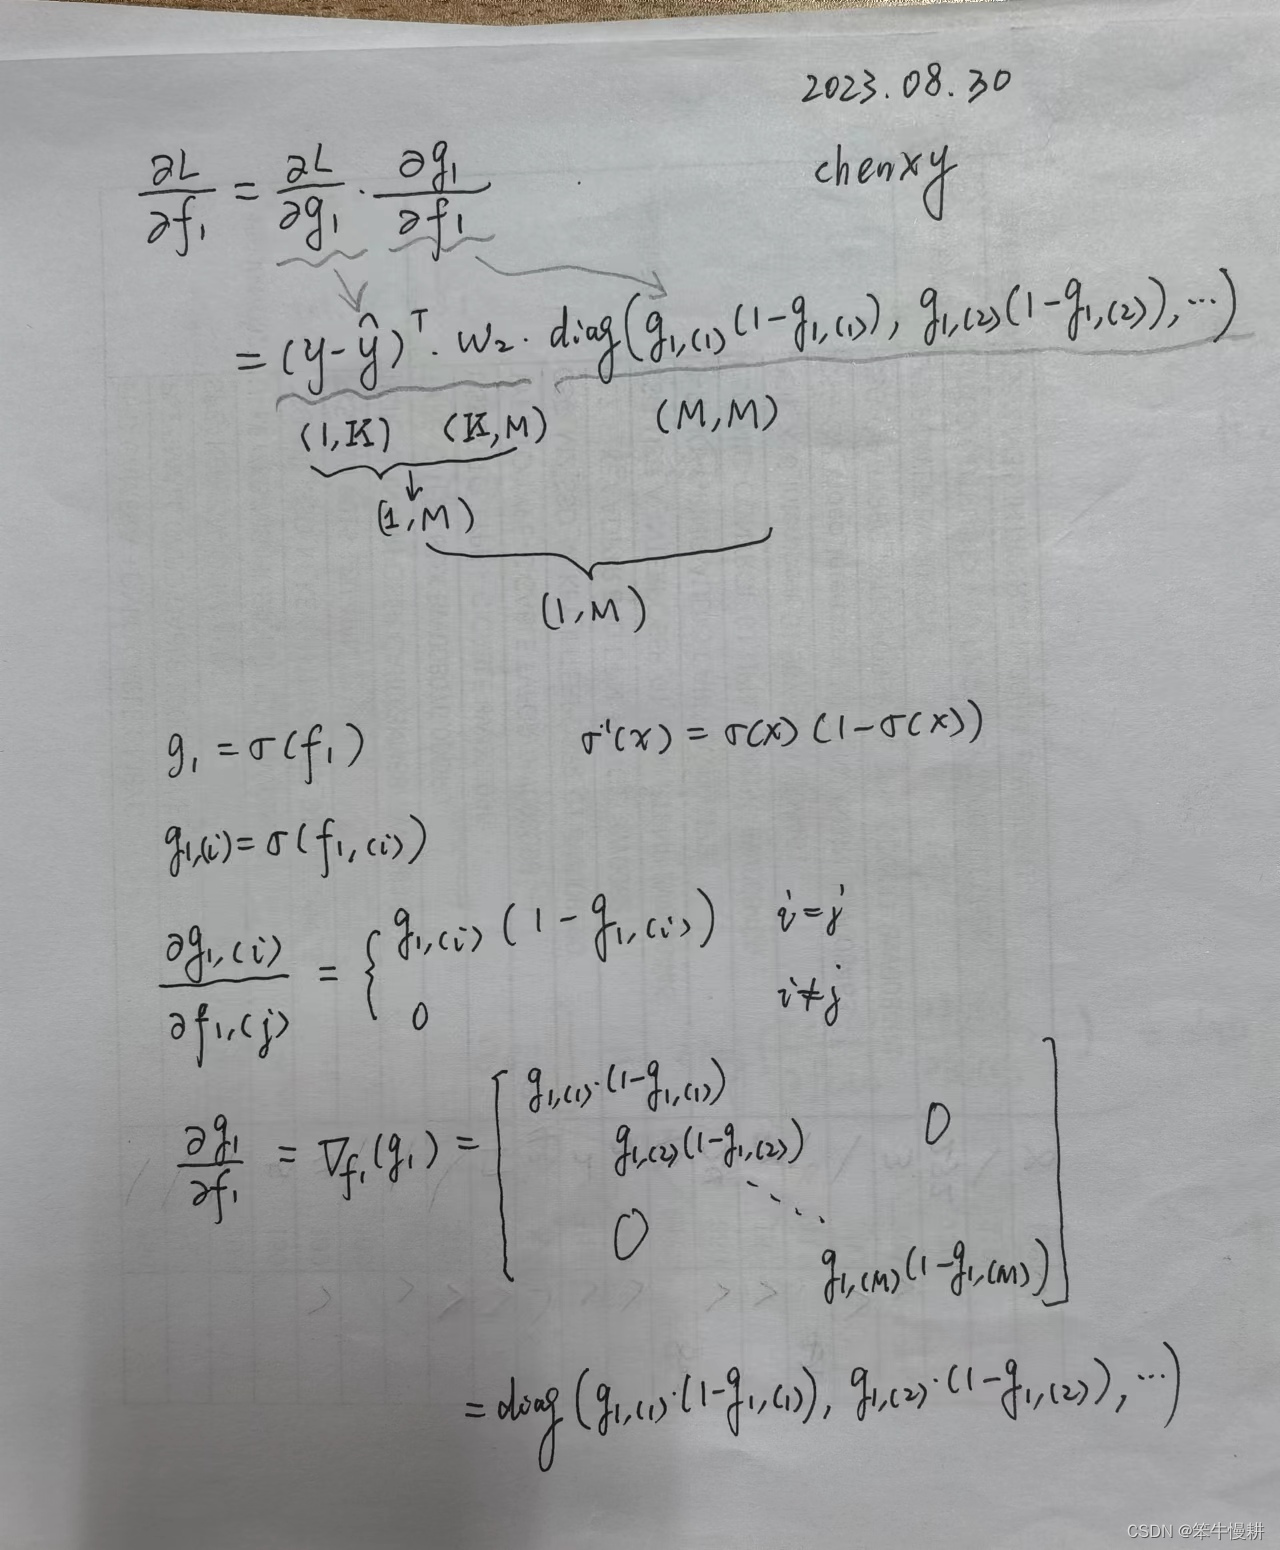 2023.08.30
chenxy
∂L/∂f₁ = ∂L/∂g₁ · ∂g₁/∂f₁
= (y-ŷ)ᵀ · W₂ · diag(g₁,₍₁₎(1-g₁,₍₁₎), g₁,₍₂₎(1-g₁,₍₂₎), ...)
(1,K) (K,M) (M,M)
(1,M)
(1,M)
g₁ = σ(f₁) σ'(x) = σ(x)(1-σ(x))
g₁,₍ᵢ₎ = σ(f₁,₍ᵢ₎)
∂g₁,(i)/∂f₁,(j) = { g₁,(i) (1 - g₁,(i)) i=j
0 i≠j
∂g₁/∂f₁ = ∇f₁(g₁) = [ g₁,(1)·(1-g₁,(1))
g₁,(2)(1-g₁,(2)) 0
0 ...
g₁,(M)(1-g₁,(M)) ]
= diag(g₁,(1)·(1-g₁,(1)), g₁,(2)·(1-g₁,(2)), ...)
CSDN @笨牛慢耕